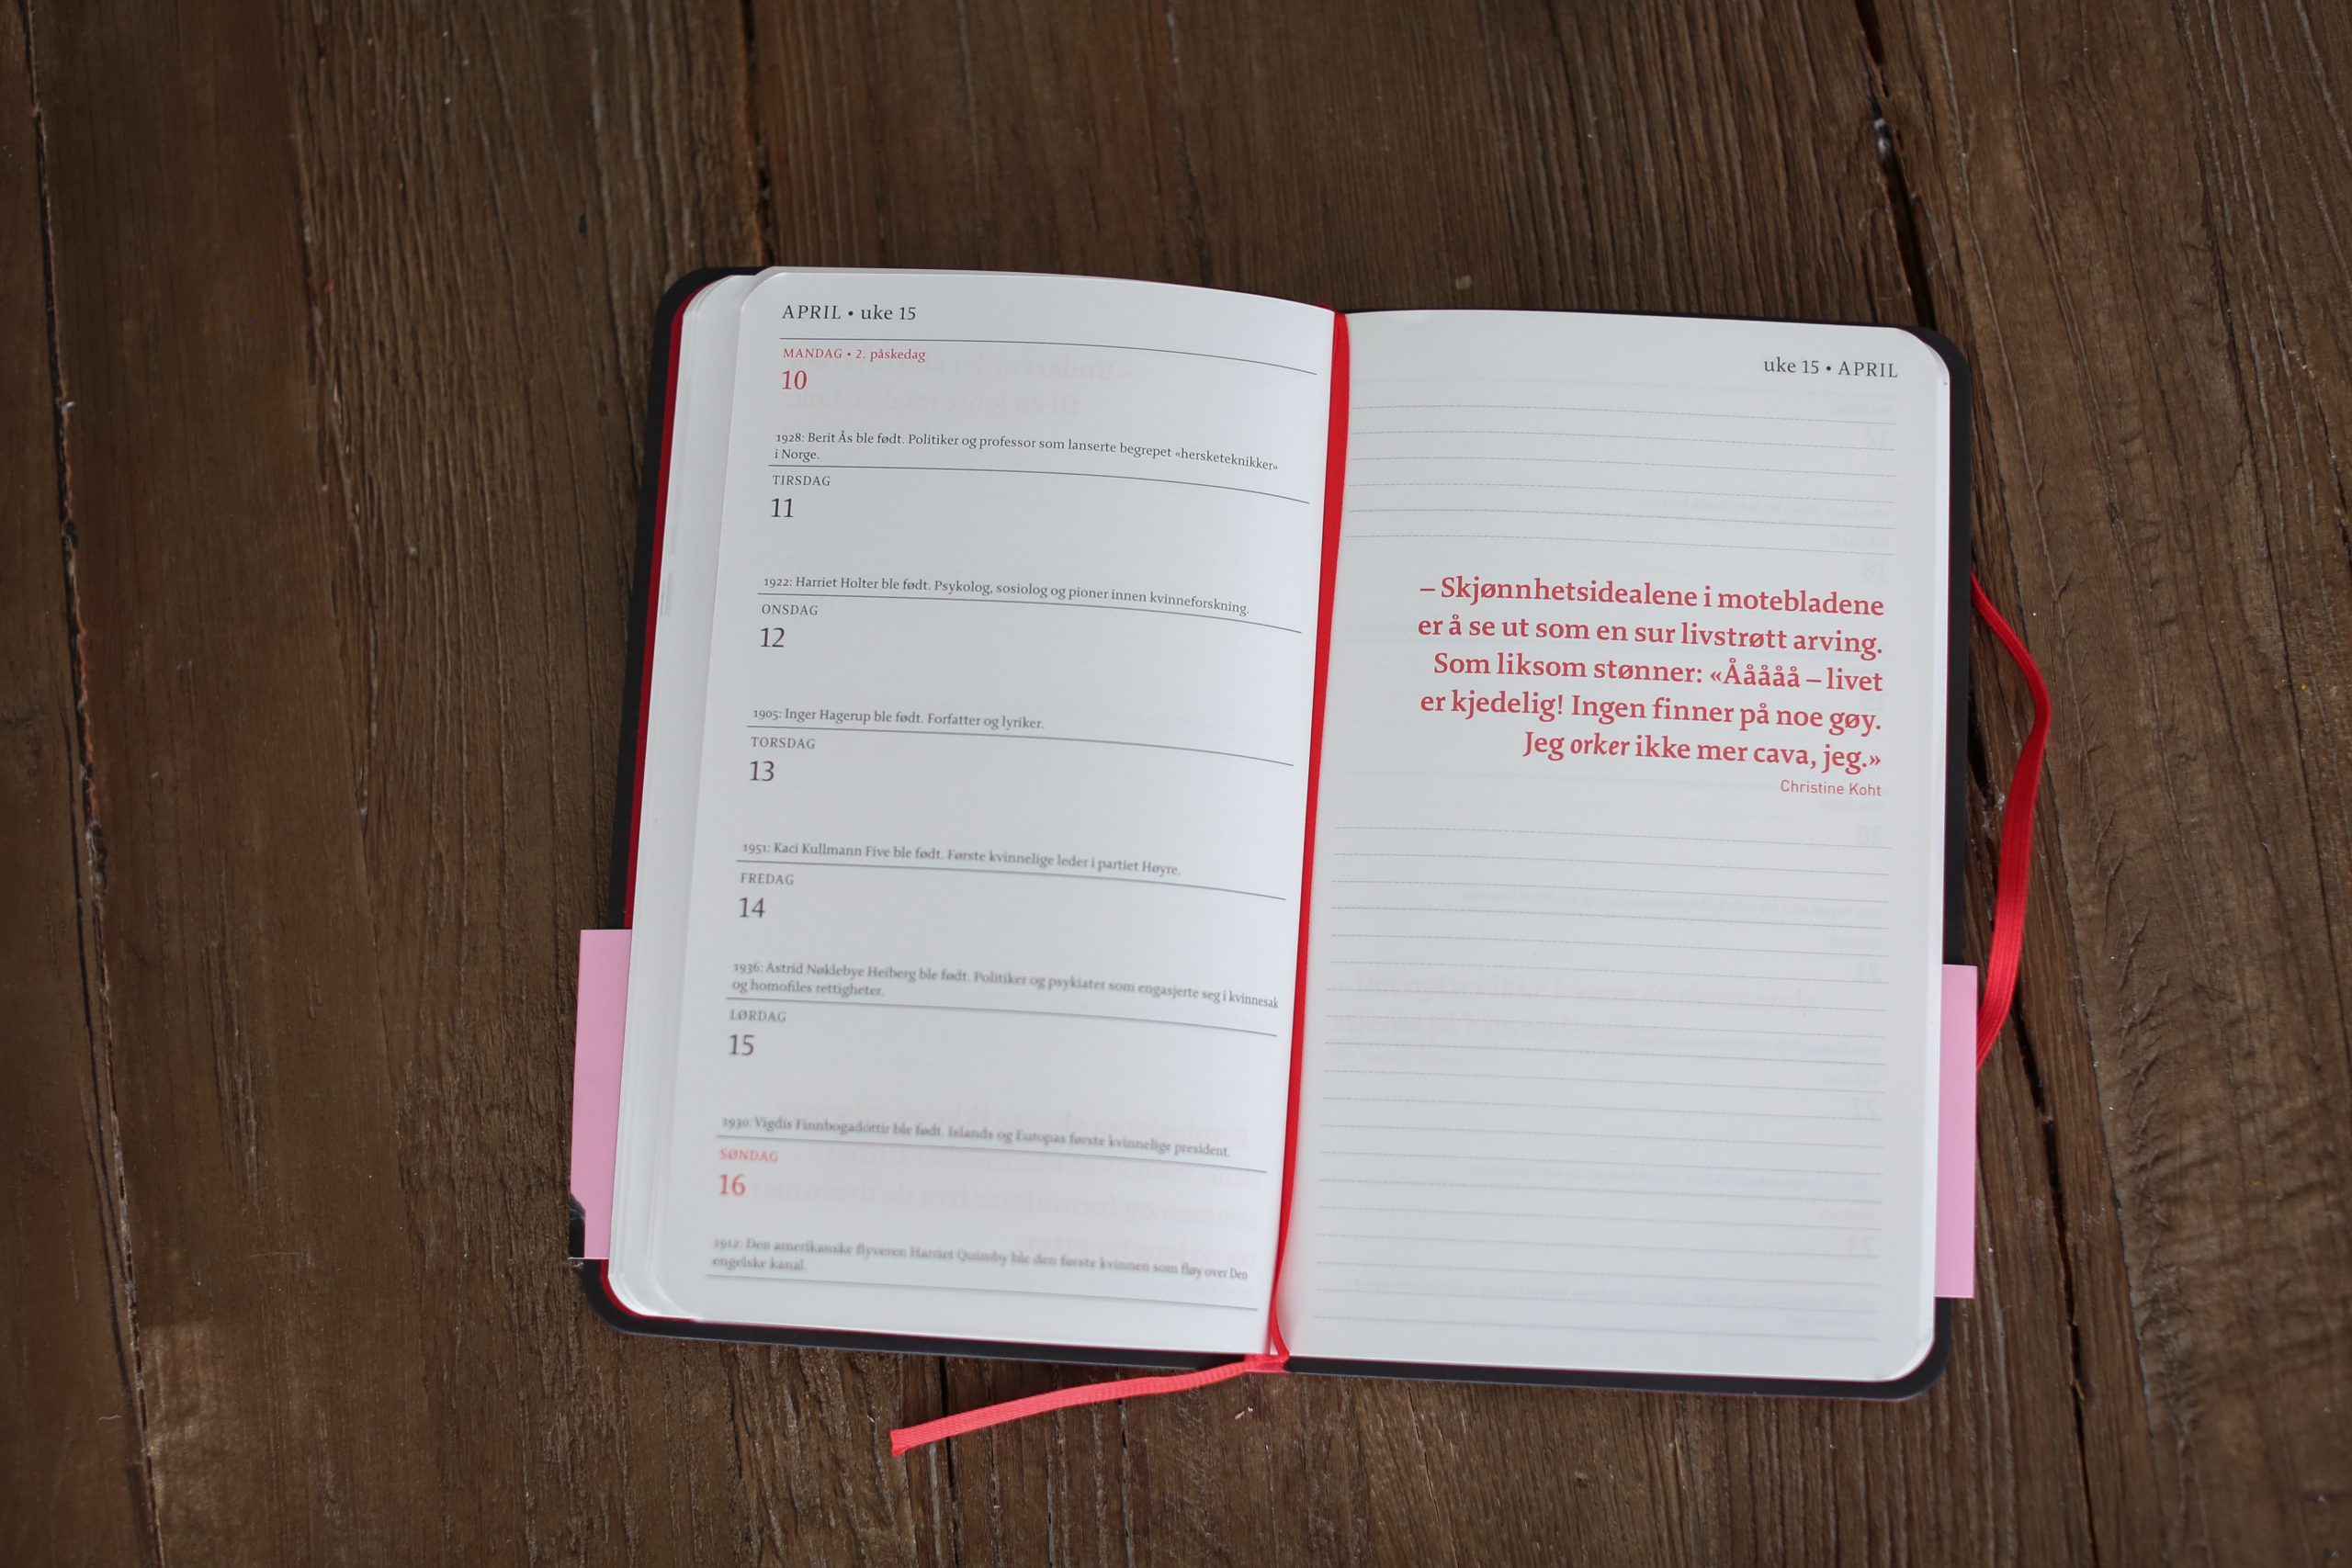 APRIL • uke 15
MANDAG • 2. påskedag
10
1928: Berit Ås ble født. Politiker og professor som lanserte begrepet «hersketeknikker»
i Norge.
TIRSDAG
11
1922: Harriet Holter ble født. Psykolog, sosiolog og pioner innen kvinneforskning.
ONSDAG
12
1905: Inger Hagerup ble født. Forfatter og lyriker.
TORSDAG
13
1951: Kaci Kullmann Five ble født. Første kvinnelige leder i partiet Høyre.
FREDAG
14
1936: Astrid Nøklebye Heiberg ble født. Politiker og psykiater som engasjerte seg i kvinnesak
og homofiles rettigheter.
LØRDAG
15
1930: Vigdis Finnbogadóttir ble født. Islands og Europas første kvinnelige president.
SØNDAG
16
1912: Den amerikanske flyveren Harriet Quimby ble den første kvinnen som fløy over Den
engelske kanal.
uke 15 • APRIL
– Skjønnhetsidealene i motebladene
er å se ut som en sur livstrøtt arving.
Som liksom stønner: «Ååååå – livet
er kjedelig! Ingen finner på noe gøy.
Jeg orker ikke mer cava, jeg.»
Christine Koht